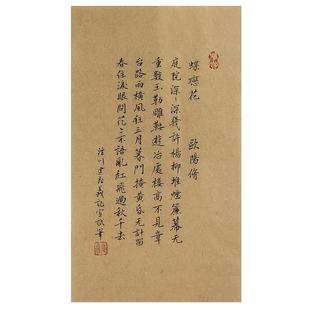 蝶戀花 歐陽脩
庭院深深幾許楊柳堆煙簾幕无
重數玉勒雕鞍遊冶處樓高不見章
台路雨橫風狂三月暮門掩黃昏无計留
春住淚眼問花花不語亂紅飛過秋千去